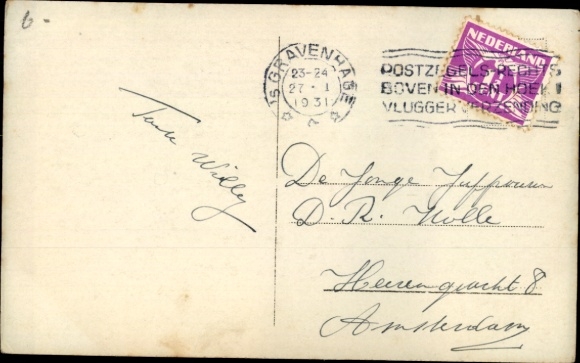 6-
'S GRAVENHAGE
23-24
27 · I
1931
POSTZEGELS RECHTS
BOVEN IN DEN HOEK!
VLUGGER VERZENDING
NEDERLAND
1½
Tante Willy
De Jonge Juffrouw
D. R. Nolle
Heerengracht 8
Amsterdam